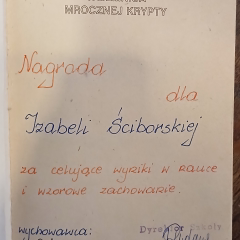 MROCZNEJ KRYPTY
Nagroda
dla
Izabeli Ściborskiej
za celujące wyniki w nauce
i wzorowe zachowanie.
wychowawca:
Dyrektor Szkoły